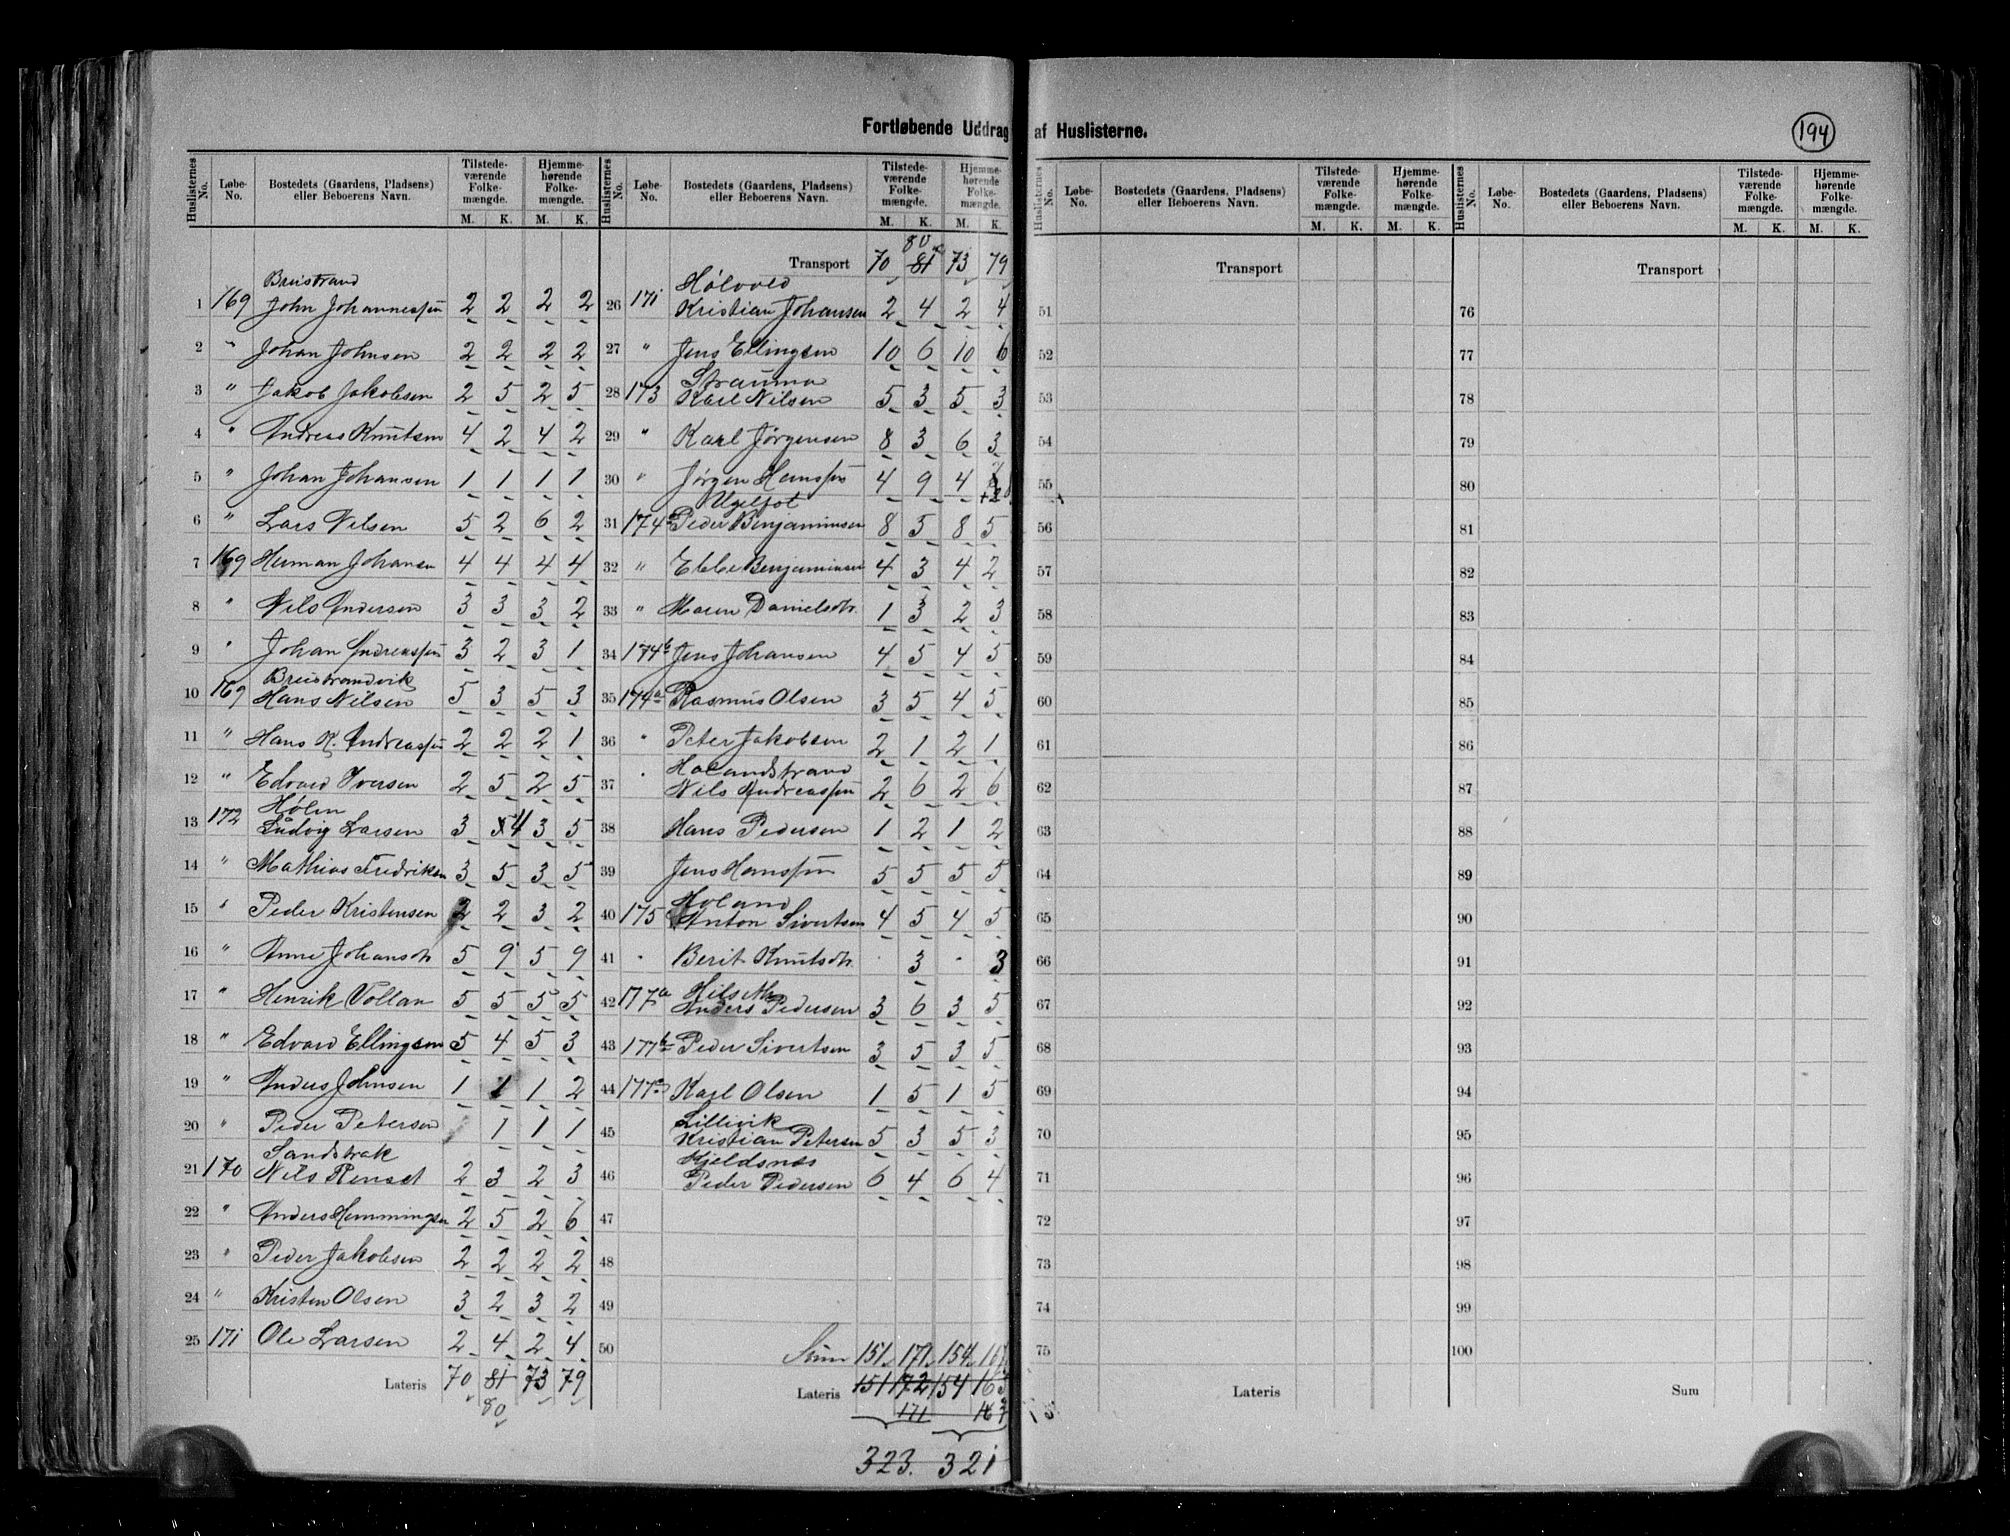 Fortløbende Uddrag af Huslisterne.
194
Huslisternes No. Løbe-No. Bostedets (Gaardens, Pladsens) eller Beboerens Navn. Tilstedeværende Folkemængde. M. K. Hjemmehørende Folkemængde. M. K.
Breistrand
1 169 John Johannessen 2 2 2 2
2 " Johan Johnsen 2 2 2 2
3 " Jakob Jakobsen 2 5 2 5
4 " Andreas Knutsen 4 2 4 2
5 " Johan Johansen 1 1 1 1
6 " Lars Nilsen 5 2 6 2
7 169 Herman Johansen 4 4 4 4
8 " Nils Andersen 3 3 3 2
9 " Johan Andreassen 3 2 3 1
Breistrandvik
10 169 Hans Nilsen 5 3 5 3
11 " Hans K. Andreassen 2 2 2 1
12 " Edvard Iversen 2 5 2 5
Hølen
13 172 Ludvig Larsen 3 5 4 3 5
14 " Mathias Fredriksen 3 5 3 5
15 " Peder Kristensen 2 2 3 2
16 " Anne Johansdtr 5 9 5 9
17 " Henrik Vollan 5 5 5 5
18 " Edvard Ellingsen 5 4 5 3
19 " Anders Johnsen 1 1 1 2
20 " Peder Petersen 1 1 1
Sandstrak
21 170 Nils Renset 2 3 2 3
22 " Anders Hemmingsen 2 5 2 6
23 " Peder Jakobsen 2 2 2 2
24 " Kristen Olsen 3 2 3 2
25 171 Ole Larsen 2 4 2 4
Lateris 70 81 73 79
80
Huslisternes No. Løbe-No. Bostedets (Gaardens, Pladsens) eller Beboerens Navn. Tilstedeværende Folkemængde. M. K. Hjemmehørende Folkemængde. M. K.
80
Transport 70 81 73 79
Hølvold
26 171 Kristian Johansen 2 4 2 4
27 " Jens Ellingsen 10 6 10 6
Strauma
28 173 Karl Nilsen 5 3 5 3
29 " Karl Jørgensen 8 3 6 3
30 " Jørgen Hanssen 4 9 4
Ugelfot
31 174a Peder Benjaminsen 8 5 8 5
32 " Ebbe Benjaminsen 4 3 4 2
33 " Maren Danielsdtr. 1 3 2 3
34 174b Jens Johansen 4 5 4 5
35 174a Rasmus Olsen 3 5 4 5
36 " Peter Jakobsen 2 1 2 1
Holandstrand
37 " Nils Andreassen 2 6 2 6
38 Hans Pedersen 1 2 1 2
39 Jens Hanssen 5 5 5 5
Holand
40 175 Anton Sivertsen 4 5 4 5
41 " Berit Knutsdtr. · 3 · 3
42 177a Anders Pedersen 3 6 3 5
43 177b Peder Sivertsen 3 5 3 5
44 177a Karl Olsen 1 5 1 5
Lillevik
45 Kristian Petersen 5 3 5 3
Kjeldsnes
46 Peder Pedersen 6 4 6 4
47
48
49
50 Sum 151 171 154 167
Lateris 151 172 154 165
171 167
323. 321
Huslisternes No. Løbe-No. Bostedets (Gaardens, Pladsens) eller Beboerens Navn. Tilstedeværende Folkemængde. M. K. Hjemmehørende Folkemængde. M. K.
Transport
51
52
53
54
55
56
57
58
59
60
61
62
63
64
65
66
67
68
69
70
71
72
73
74
75
Lateris
Huslisternes No. Løbe-No. Bostedets (Gaardens, Pladsens) eller Beboerens Navn. Tilstedeværende Folkemængde. M. K. Hjemmehørende Folkemængde. M. K.
Transport
76
77
78
79
80
81
82
83
84
85
86
87
88
89
90
91
92
93
94
95
96
97
98
99
100
Sum